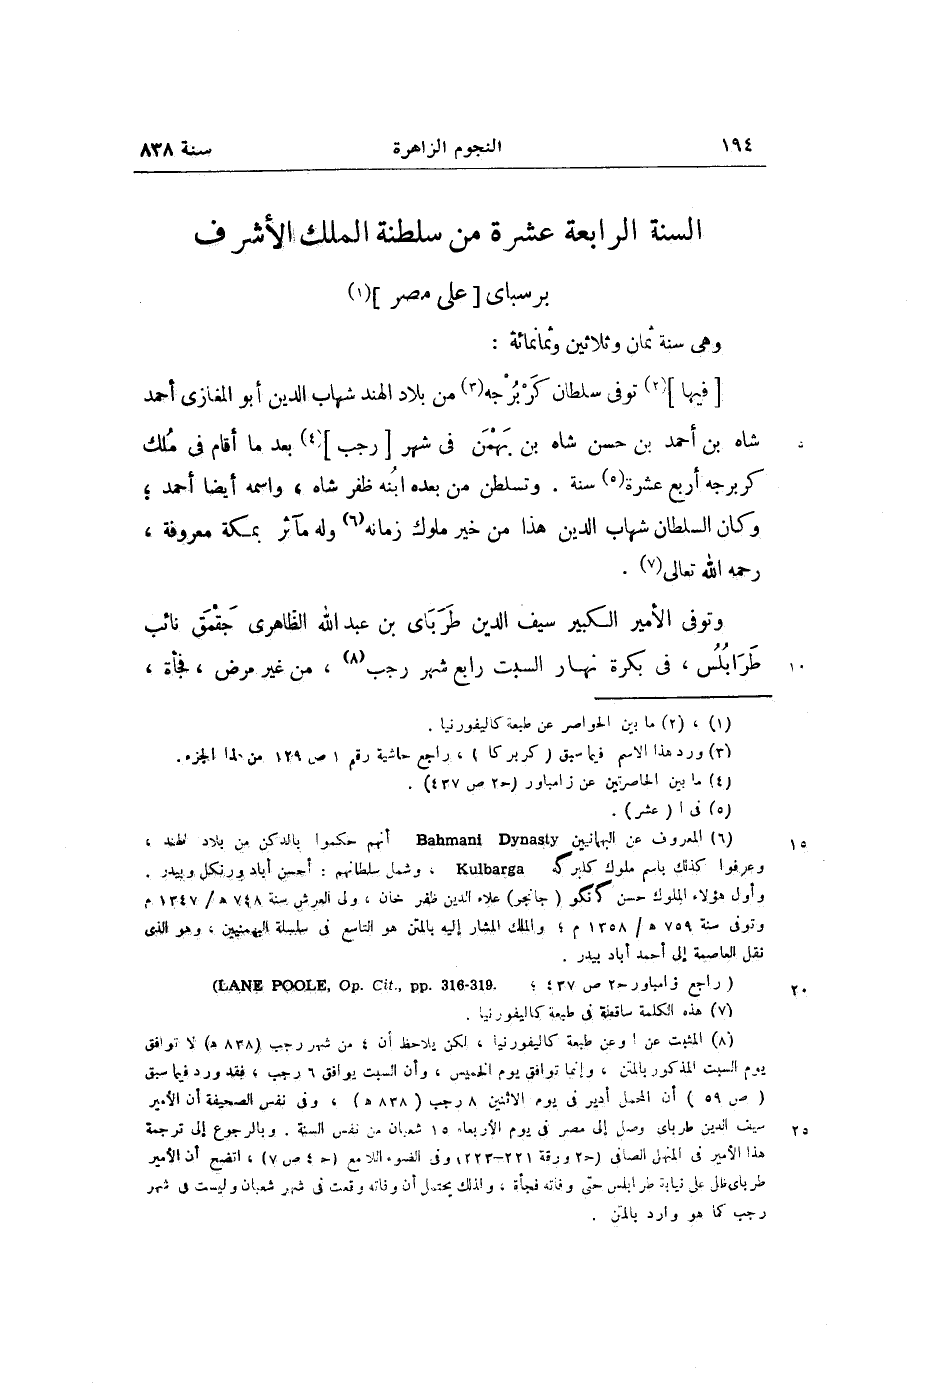 ١٩٤ النجوم الزاهرة سنة ٨٣٨
السنة الرابعة عشرة من سلطنة الملك الأشرف
برسباى [ على مصر ](١)
وهى سنة ثمان وثلاثين وثمانمائة :
[ فيها ](٢) توفى سلطان كَرْبُرْجه(٣) من بلاد الهند شهاب الدين أبو المغازى أحمد
شاه بن أحمد بن حسن شاه بن بَهْمَن فى شهر [ رجب ](٤) بعد ما أقام فى مُلك ٥
كربرجه أربع عشرة(٥) سنة . وتسلطن من بعده ابنُه ظفر شاه ، واسمه أيضا أحمد ؛
وكان السلطان شهاب الدين هذا من خير ملوك زمانه(٦) وله مآثر بمكة معروفة ،
رحمه الله تعالى(٧) .
وتوفى الأمير الكبير سيف الدين طَرَبَاى بن عبد الله الظاهرى جَقْمَق نائب
طَرَابُلُس ، فى بكرة نهار السبت رابع شهر رجب(٨) ، من غير مرض ، فجأة ، ١٠
(١) ، (٢) ما بين الحواصر عن طبعة كاليفورنيا .
(٣) ورد هذا الاسم فيما سبق ( كربركا ) ، راجع حاشية رقم ١ ص ١٢٩ من هذا الجزء .
(٤) ما بين الحاصرتين عن زامباور (ح٢ ص ٤٣٧) .
(٥) فى ا ( عشر ) .
(٦) المعروف عن البهمانيين Bahmani Dynasty أنهم حكموا بالدكن من بلاد الهند ، ١٥
وعرفوا كذلك باسم ملوك كلبركه Kulbarga ، وشمل سلطانهم : أحسن أباد ورنكل وبيدر .
وأول هؤلاء الملوك حسن كانكو ( جانجو) علاء الدين ظفر خان ، ولى العرش سنة ٧٤٨ ه/ ١٣٤٧ م
وتوفى سنة ٧٥٩ ه/ ١٣٥٨ م ؛ والملك المشار إليه بالمتن هو التاسع فى سلسلة البهمنيين ، وهو الذى
نقل العاصمة إلى أحمد أباد بيدر .
( راجع زامباور ح٢ ص ٤٣٧ ؛ LANE POOLE, Op. Cit., pp. 316-319.) ٢٠
(٧) هذه الكلمة ساقطة فى طبعة كاليفورنيا .
(٨) المثبت عن ا وعن طبعة كاليفورنيا ، لكن يلاحظ أن ٤ من شهر رجب (٨٣٨ ه) لا توافق
يوم السبت المذكور بالمتن ، وإنما توافق يوم الخميس ، وأن السبت يوافق ٦ رجب ، فقد ورد فيما سبق
( ص ٥٩ ) أن المحمل أدير فى يوم الاثنين ٨ رجب ( ٨٣٨ ه ) ، وفى نفس الصحيفة أن الأمير
سيف الدين طرباى وصل إلى مصر فى يوم الأربعاء ١٥ شعبان من نفس السنة . وبالرجوع إلى ترجمة ٢٥
هذا الأمير فى المنهل الصافى (ح٢ ورقة ٢٢١-٢٢٣)، وفى الضوء اللامع (ح ٤ ص ٧) ، اتضح أن الأمير
طرباى ظل على نيابة طرابلس حتى وفاته فجأة ، ولذلك يحتمل أن وفاته وقعت فى شهر شعبان وليست فى شهر
رجب كما هو وارد بالمتن .